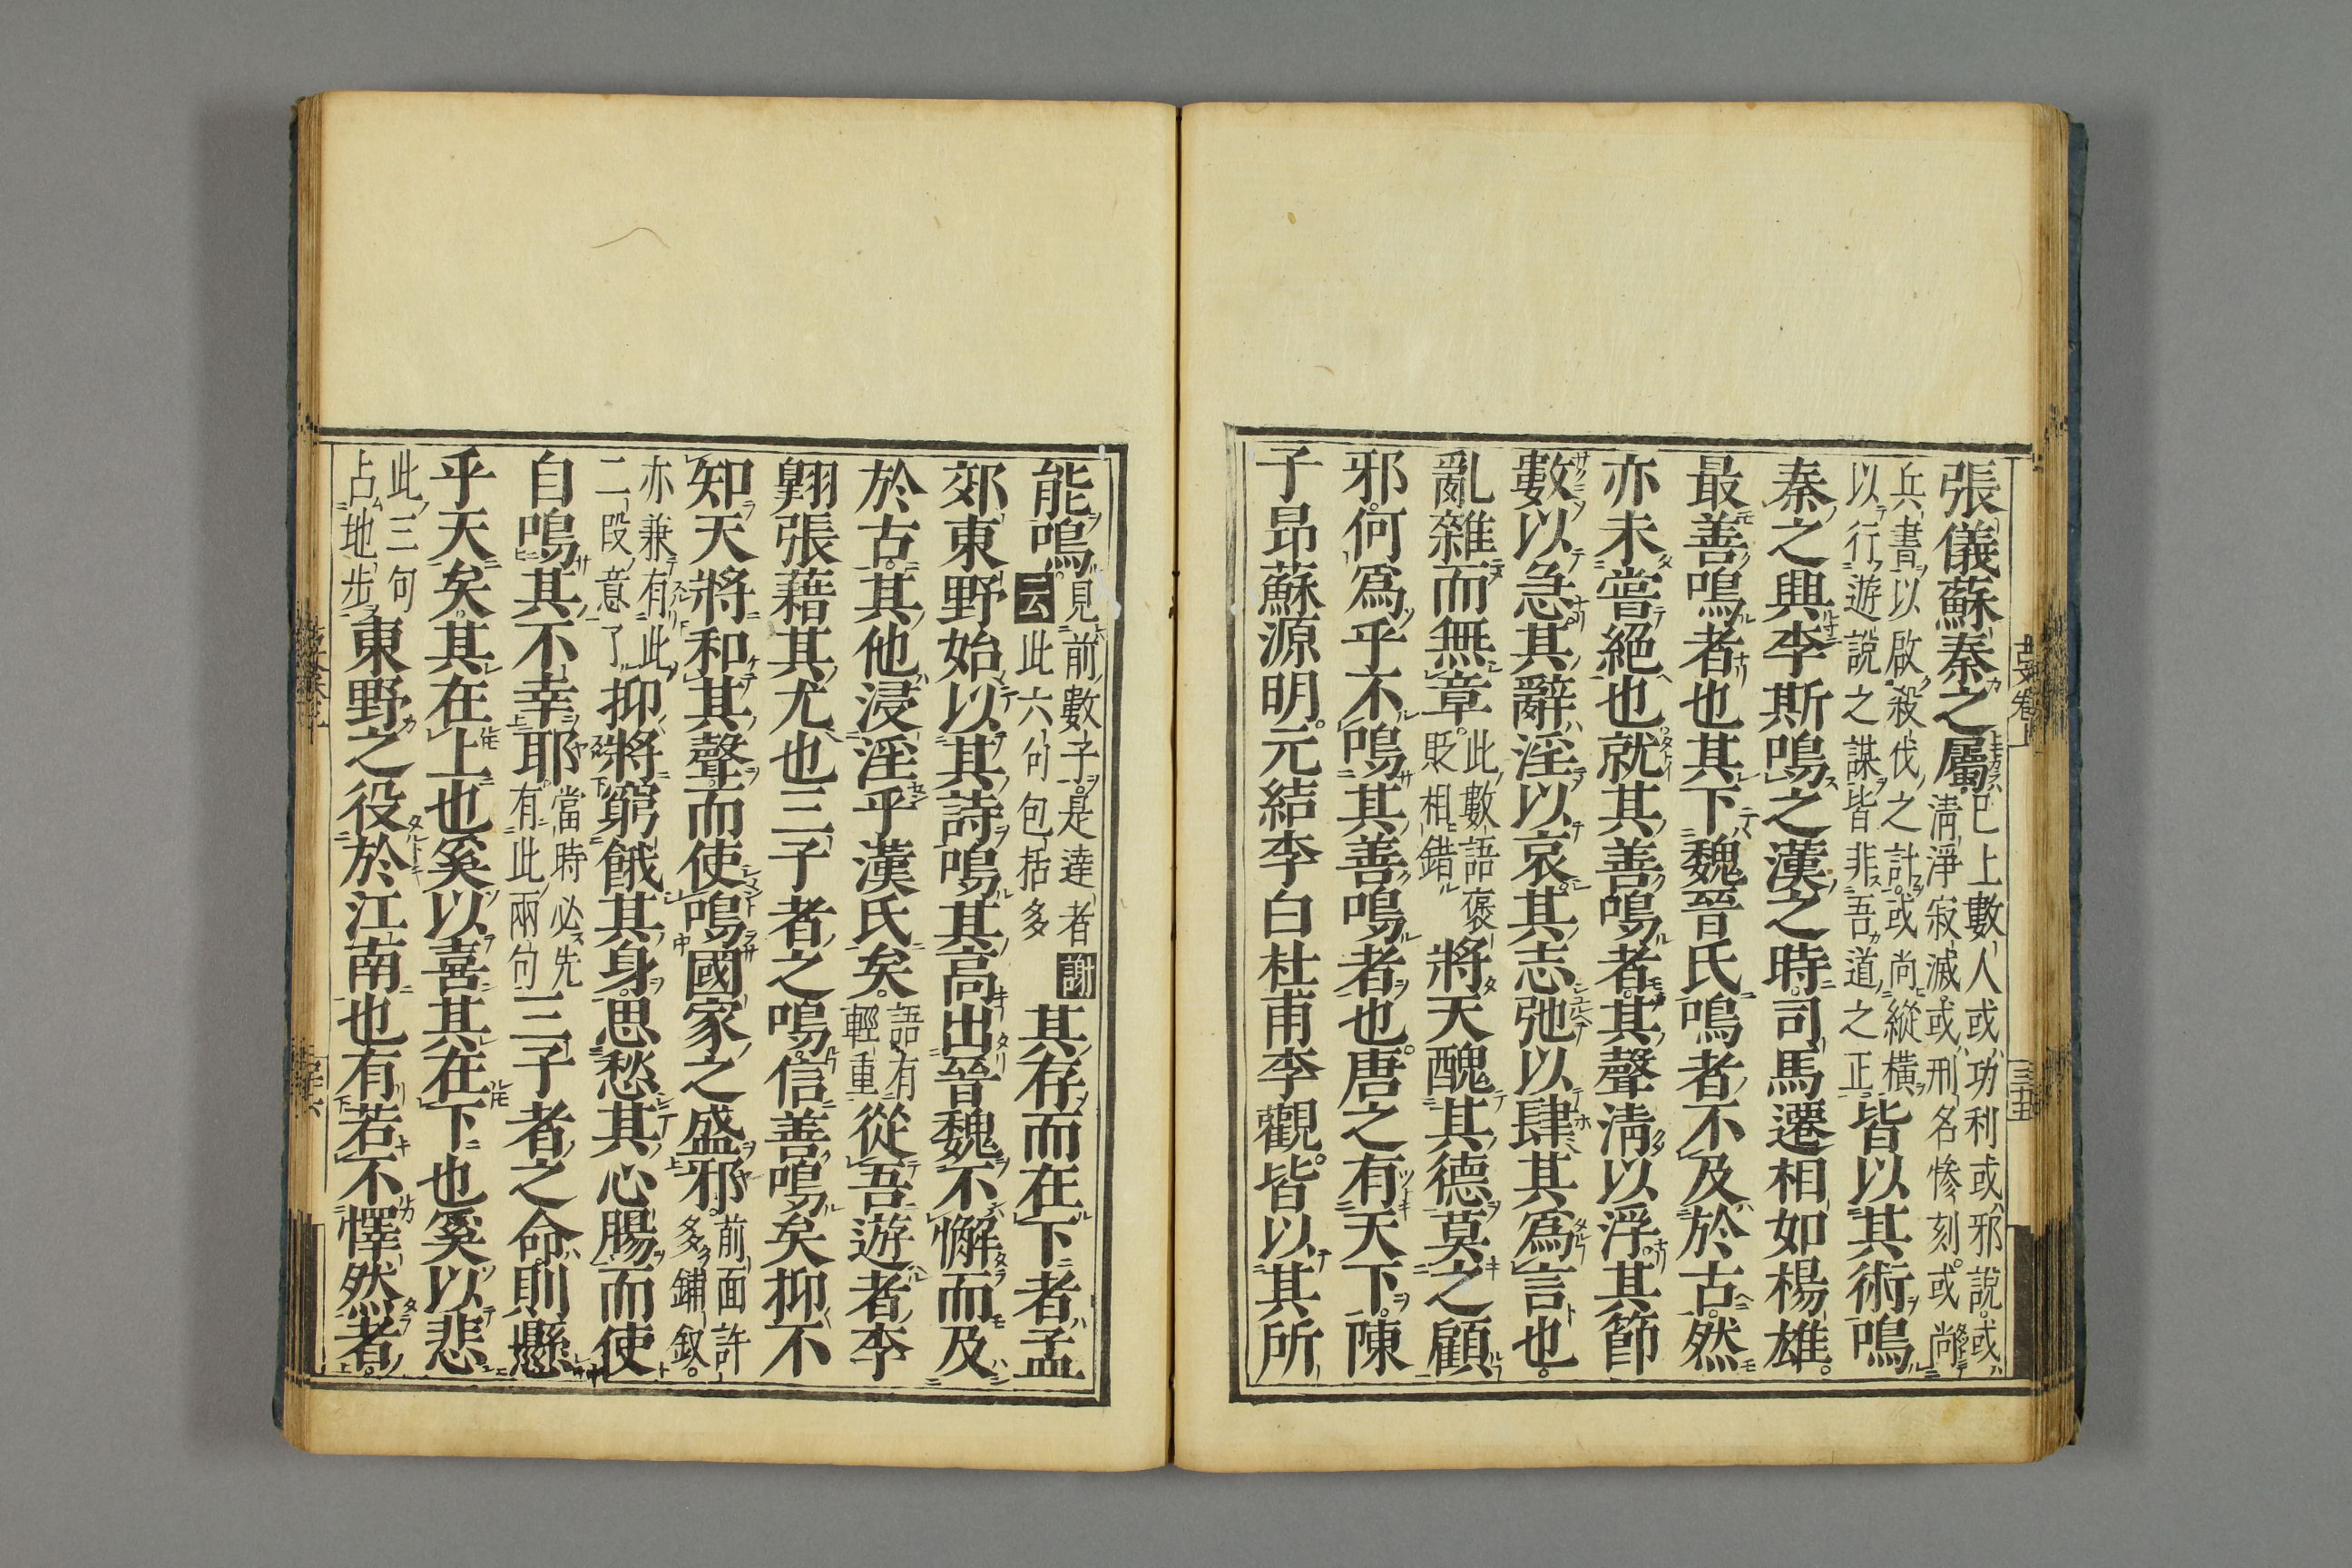 張儀蘇秦之屬已上數人或功利或邪說或清淨寂滅或刑名慘刻或尚
兵書以啟殺伐之計或尚縱橫以行遊說之謀皆非吾道之正皆以其術鳴
秦之興李斯鳴之漢之時司馬遷相如楊雄
最善鳴者也其下魏晉氏鳴者不及於古然
亦未嘗絕也就其善鳴者其聲淸以浮其節
數以急其辭淫以哀其志弛以肆其爲言也
亂雜而無章此數語褒貶相錯將天醜其德莫之顧
邪何爲乎不鳴其善鳴者也唐之有天下陳
子昂蘇源明元結李白杜甫李觀皆以其所
古文卷上
三十五
能鳴見前數子是達者謝云此六句包括多其存而在下者孟
郊東野始以其詩鳴其高出晉魏不懈而及
於古其他浸淫乎漢氏矣語有輕重從吾遊者李
翺張藉其尤也三子者之鳴信善鳴矣抑不
知天將和其聲而使鳴國家之盛邪前面許多鋪叙
亦兼有此二段意了抑將窮餓其身思愁其心腸而使
自鳴其不幸耶當時必先有此兩句三子者之命則懸
乎天矣其在上也奚以喜其在下也奚以悲
此三句占地步東野之役於江南也有若不懌然者